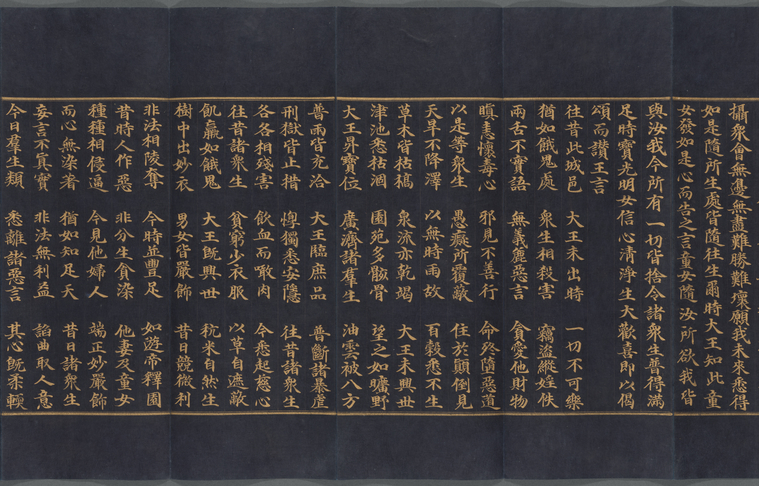 攝眾會無邊無盡難勝難壞願我未來悉得
如是隨所生處皆隨往生爾時大王知此童
女發如是心而告之言童女隨汝所欲我皆
與汝我今所有一切皆捨令諸眾生普得滿
足時寶光明女信心清淨生大歡喜即以偈
頌而讚王言
往昔此城邑 大王未出時 一切不可樂
猶如餓鬼處 眾生相殺害 竊盜縱婬佚
兩舌不實語 無義麁惡言 貪愛他財物
瞋恚懷毒心 邪見不善行 命終墮惡道
以是等眾生 愚癡所覆蔽 住於顛倒見
天旱不降澤 以無時雨故 百穀悉不生
草木皆枯槁 泉流亦乾竭 大王未興世
津池悉枯涸 園苑多骸骨 望之如曠野
大王昇寶位 廣濟諸群生 油雲被八方
普雨皆充洽 大王臨庶品 普斷諸暴虐
刑獄皆止措 惸獨悉安隱 往昔諸眾生
各各相殘害 飲血而噉肉 今悉起慈心
往昔諸眾生 貧窮少衣服 以草自遮蔽
飢羸如餓鬼 大王既興世 秔米自然生
樹中出妙衣 男女皆嚴飾 昔日競微利
非法相陵奪 今時並豐足 如遊帝釋園
昔時人作惡 非分生貪染 他妻及童女
種種相侵逼 今見他婦人 端正妙嚴飾
而心無染著 猶如知足天 昔日諸眾生
妄言不真實 非法無利益 諂曲取人意
今日群生類 悉離諸惡言 其心既柔軟